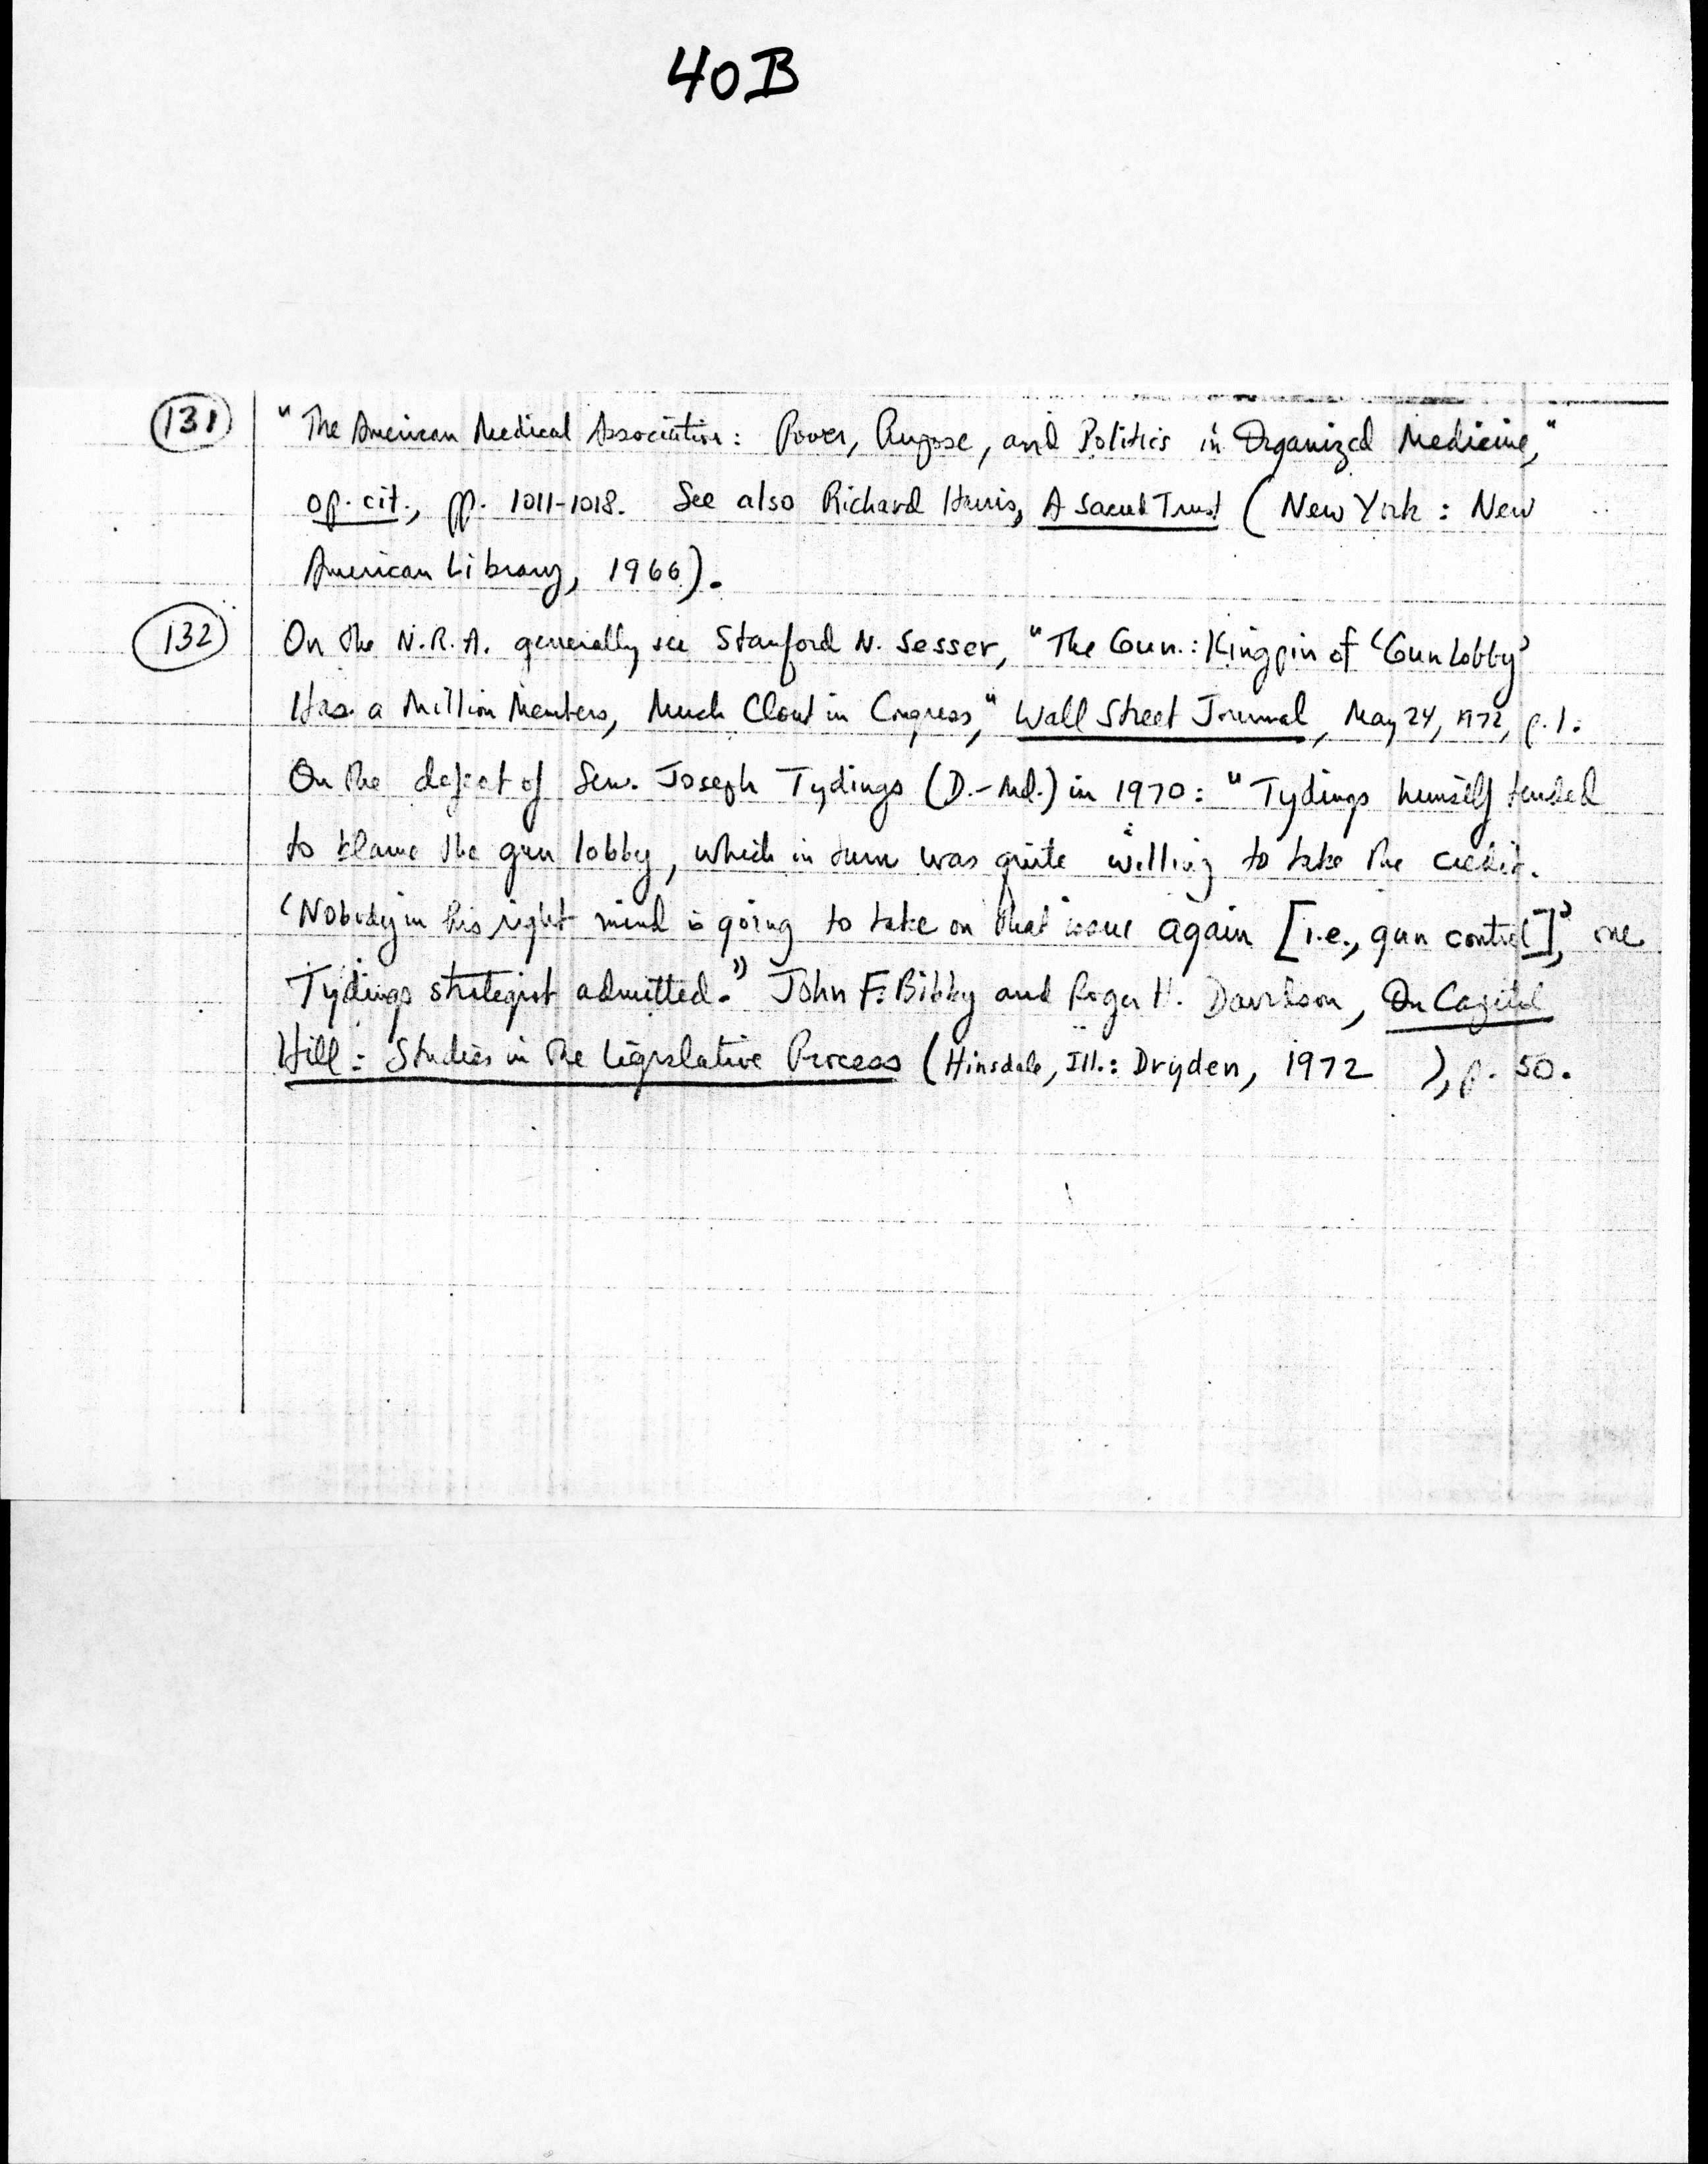 40B
131 "The American Medical Association: Power, Purpose, and Politics in Organized Medicine,"
op. cit., pp. 1011-1018. See also Richard Harris, A Sacred Trust (New York: New
American Library, 1966).
132 On the N.R.A. generally see Stanford N. Sesser, "The Gun: Kingpin of 'Gun Lobby'
Has a Million Members, Much Clout in Congress," Wall Street Journal, May 24, 1972, p. 1.
On the defeat of Sen. Joseph Tydings (D.-Md.) in 1970: "Tydings himself tended
to blame the gun lobby, which in turn was quite willing to take the credit.
'Nobody in his right mind is going to take on that issue again [i.e., gun control],' one
Tydings strategist admitted." John F. Bibby and Roger H. Davidson, On Capitol
Hill: Studies in the Legislative Process (Hinsdale, Ill.: Dryden, 1972 ), p. 50.